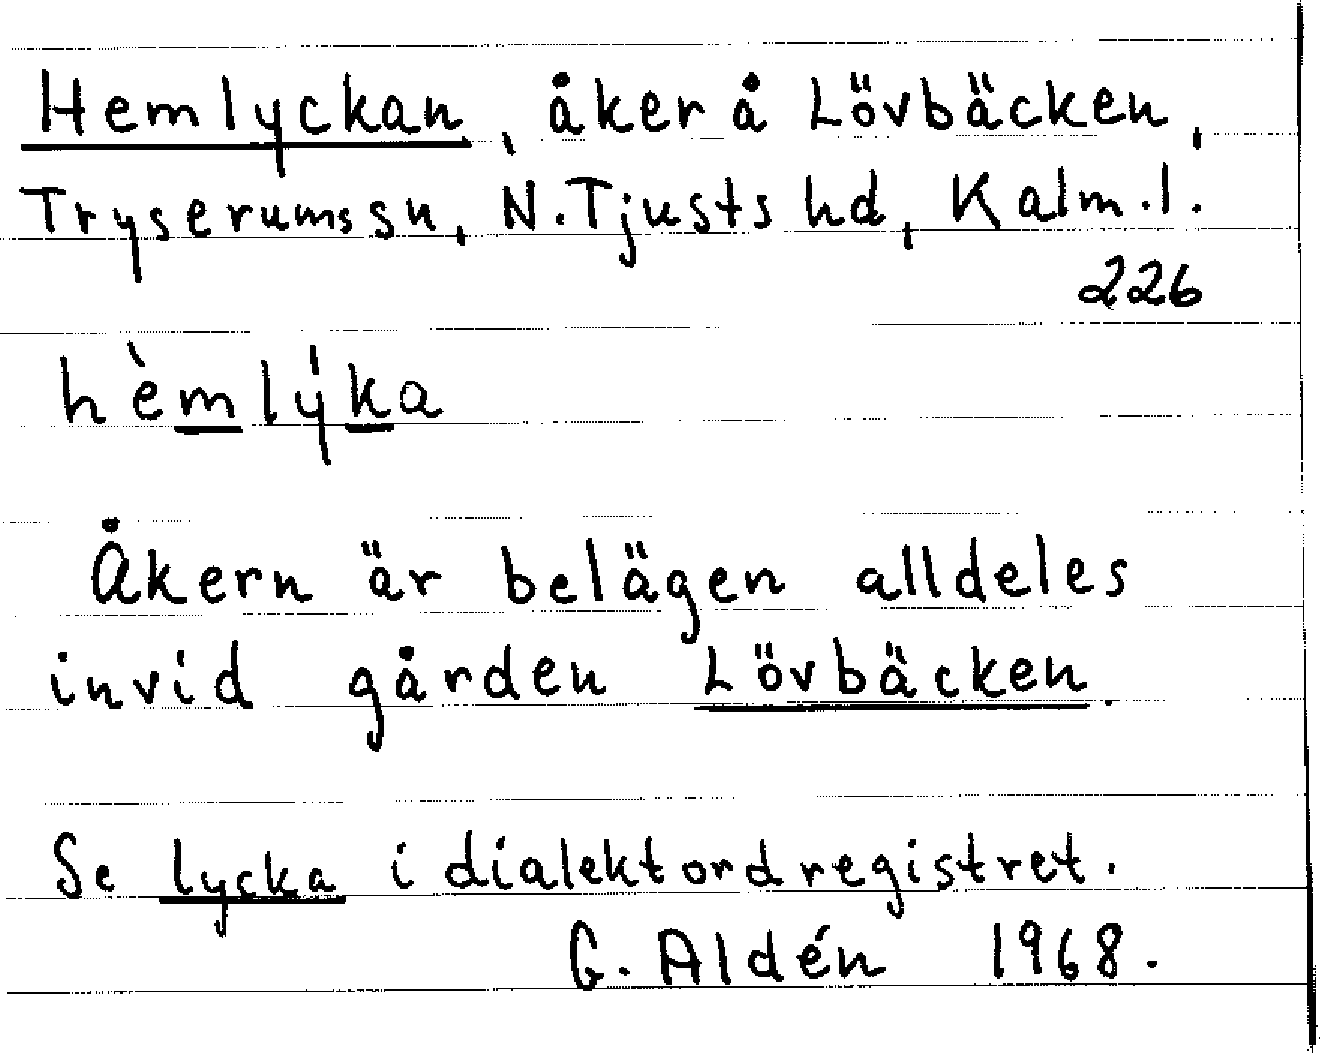 Hemlyckan, åker å Lövbäcken,
Tryserums sn, N. Tjusts hd, Kalm. l.
226
hèmlýka
Åkern är belägen alldeles
invid gården Lövbäcken.
Se lycka i dialektordregistret.
G. Aldén 1968.